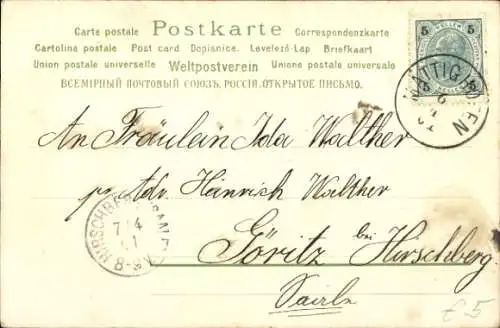 Carte postale Postkarte Correspondenzkarte
Cartolina postale Post card Dopisnice. Levelező-Lap Briefkaart
Union postale universelle Weltpostverein Unione postale universale
ВСЕМІРНЫЙ ПОЧТОВЫЙ СОЮЗЪ. РОССІЯ. ОТКРЫТОЕ ПИСЬМО.
5 5
MATTIGHOFEN
An Fräulein Ida Walther
pr. Adr. Heinrich Walther
HIRSCHBERG (SAALE)
7 4
8-9 V
Göritz bei Hirschberg
Saale
£5